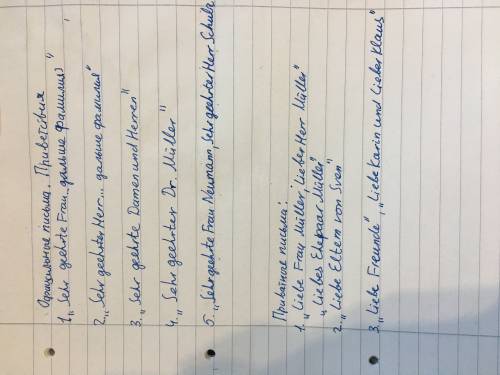 Официальные письма. Приветствия
1. „Sehr geehrte Frau... дальше фамилия)
2. „Sehr geehrter Herr... дальше фамилия"
3. „Sehr geehrte Damen und Herren"
4. „Sehr geehrter Dr. Müller"
5. „Sehr geehrte Frau Neumann, Sehr geehrter Herr Schulz
Приватные письма:
1. „Liebe Frau Müller, Lieber Herr Müller"
„Liebes Ehepaar Müller"
2. „Liebe Eltern von Sven"
3. „Liebe Freunde", „Liebe Karin und Lieber Klaus"